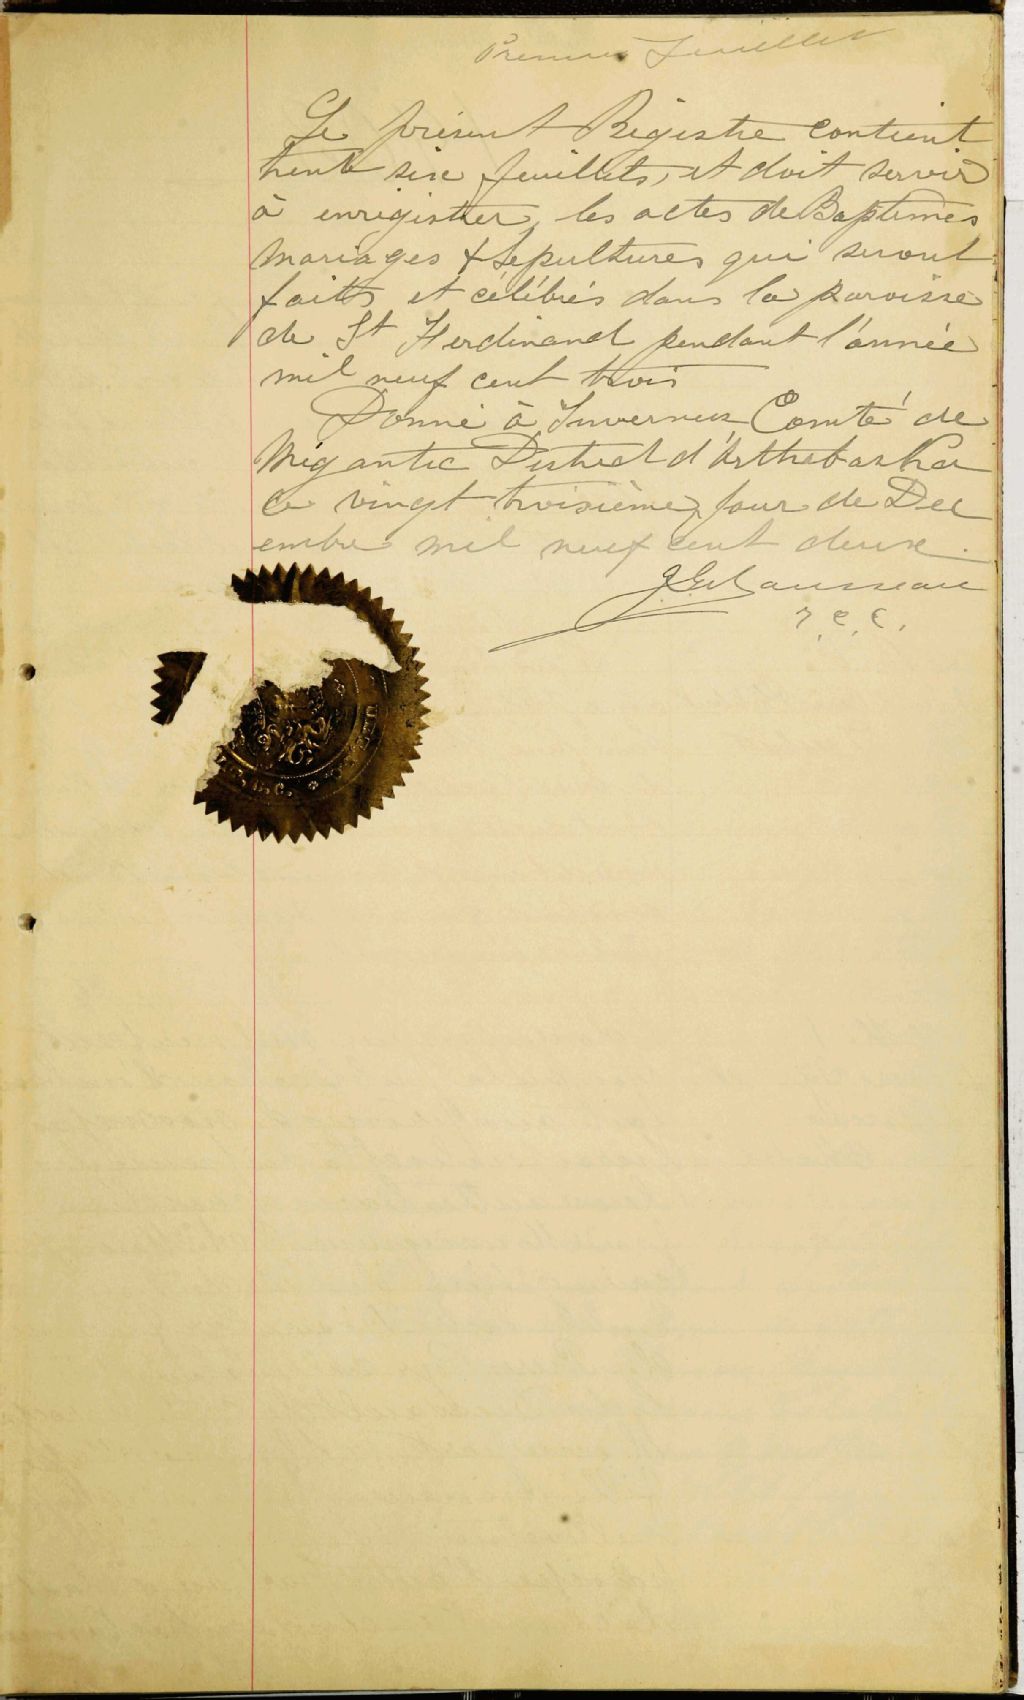 Premier Feuillet
Le présent Régistre contient
trente six feuillets, et doit servir
à enrégistrer les actes de Baptèmes
mariages & Sépultures qui seront
faits et célébrés dans la paroisse
de St Ferdinand pendant l'année
mil neuf cent trois
Donné à Inverness Comté de
Mégantic District d'Arthabaska
ce vingt troisième jour de Déc
embre mil neuf cent deux.
C. C. C.